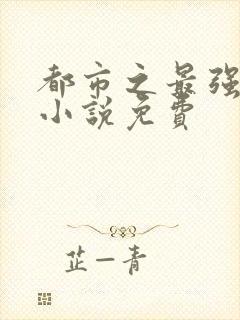 都市之最强
小说免费
芷一青